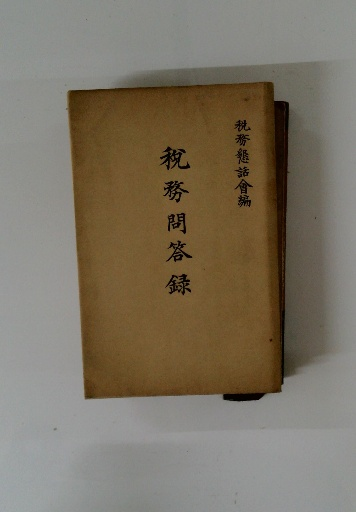 税務懇話會編
税務問答録